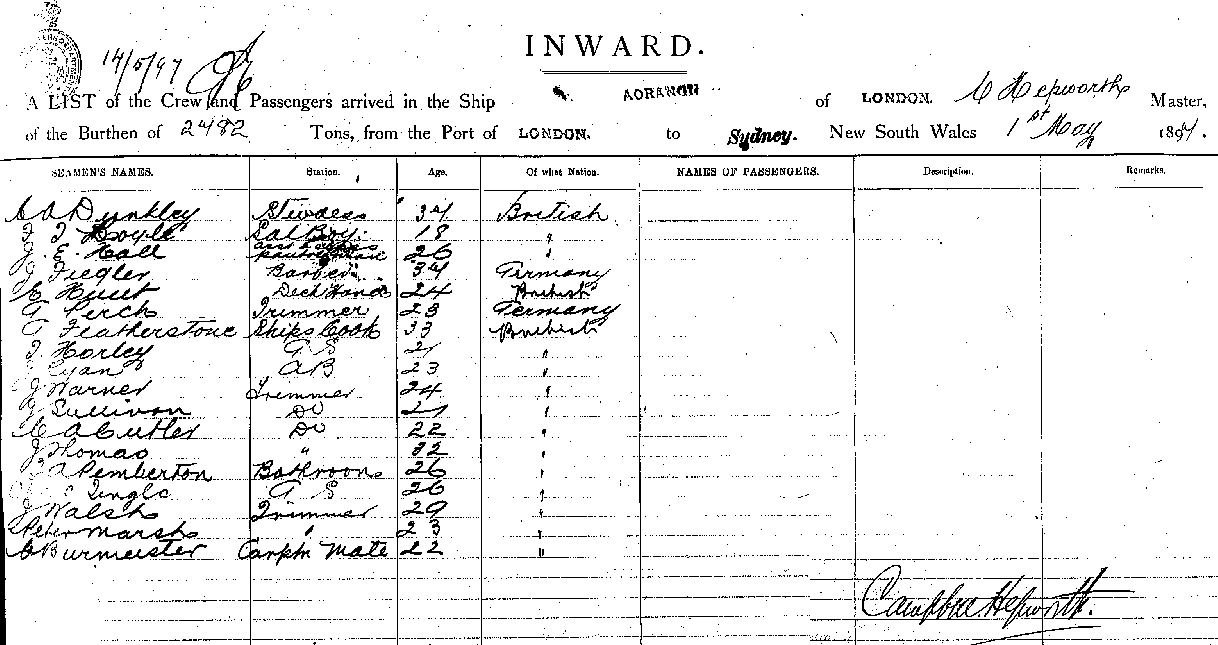 14/5/97
INWARD.
A LIST of the Crew and Passengers arrived in the Ship AORANGI of LONDON. C Hepworth Master,
of the Burthen of 2482 Tons, from the Port of LONDON. to Sydney. New South Wales 1st May 1897.
SEAMEN'S NAMES. Station. Age. Of what Nation. NAMES OF PASSENGERS. Description. Remarks.
C A Dunkley Stewdess 34 British
Doyle Sal Boy 18 "
J. E. Hall 26 "
J Fiegler Barber 34 Germany
C Huut Deck Hand 24 British
G Perch Trimmer 23 Germany
G Featherstone Ships Cook 33 British
T Horley G S 21 "
Ryan AB 23 "
J Warner Trimmer 24 "
J Sullivan Do 21 "
C A Cutler Do 22 "
J Thomas " 32 "
A Pemberton Bathroom 26 "
Single G S 26 "
J Walsh Trimmer 29 "
Peter Marsh " 23 "
C Burmeister Carptr Mate 22 "
Campbell Hepworth.